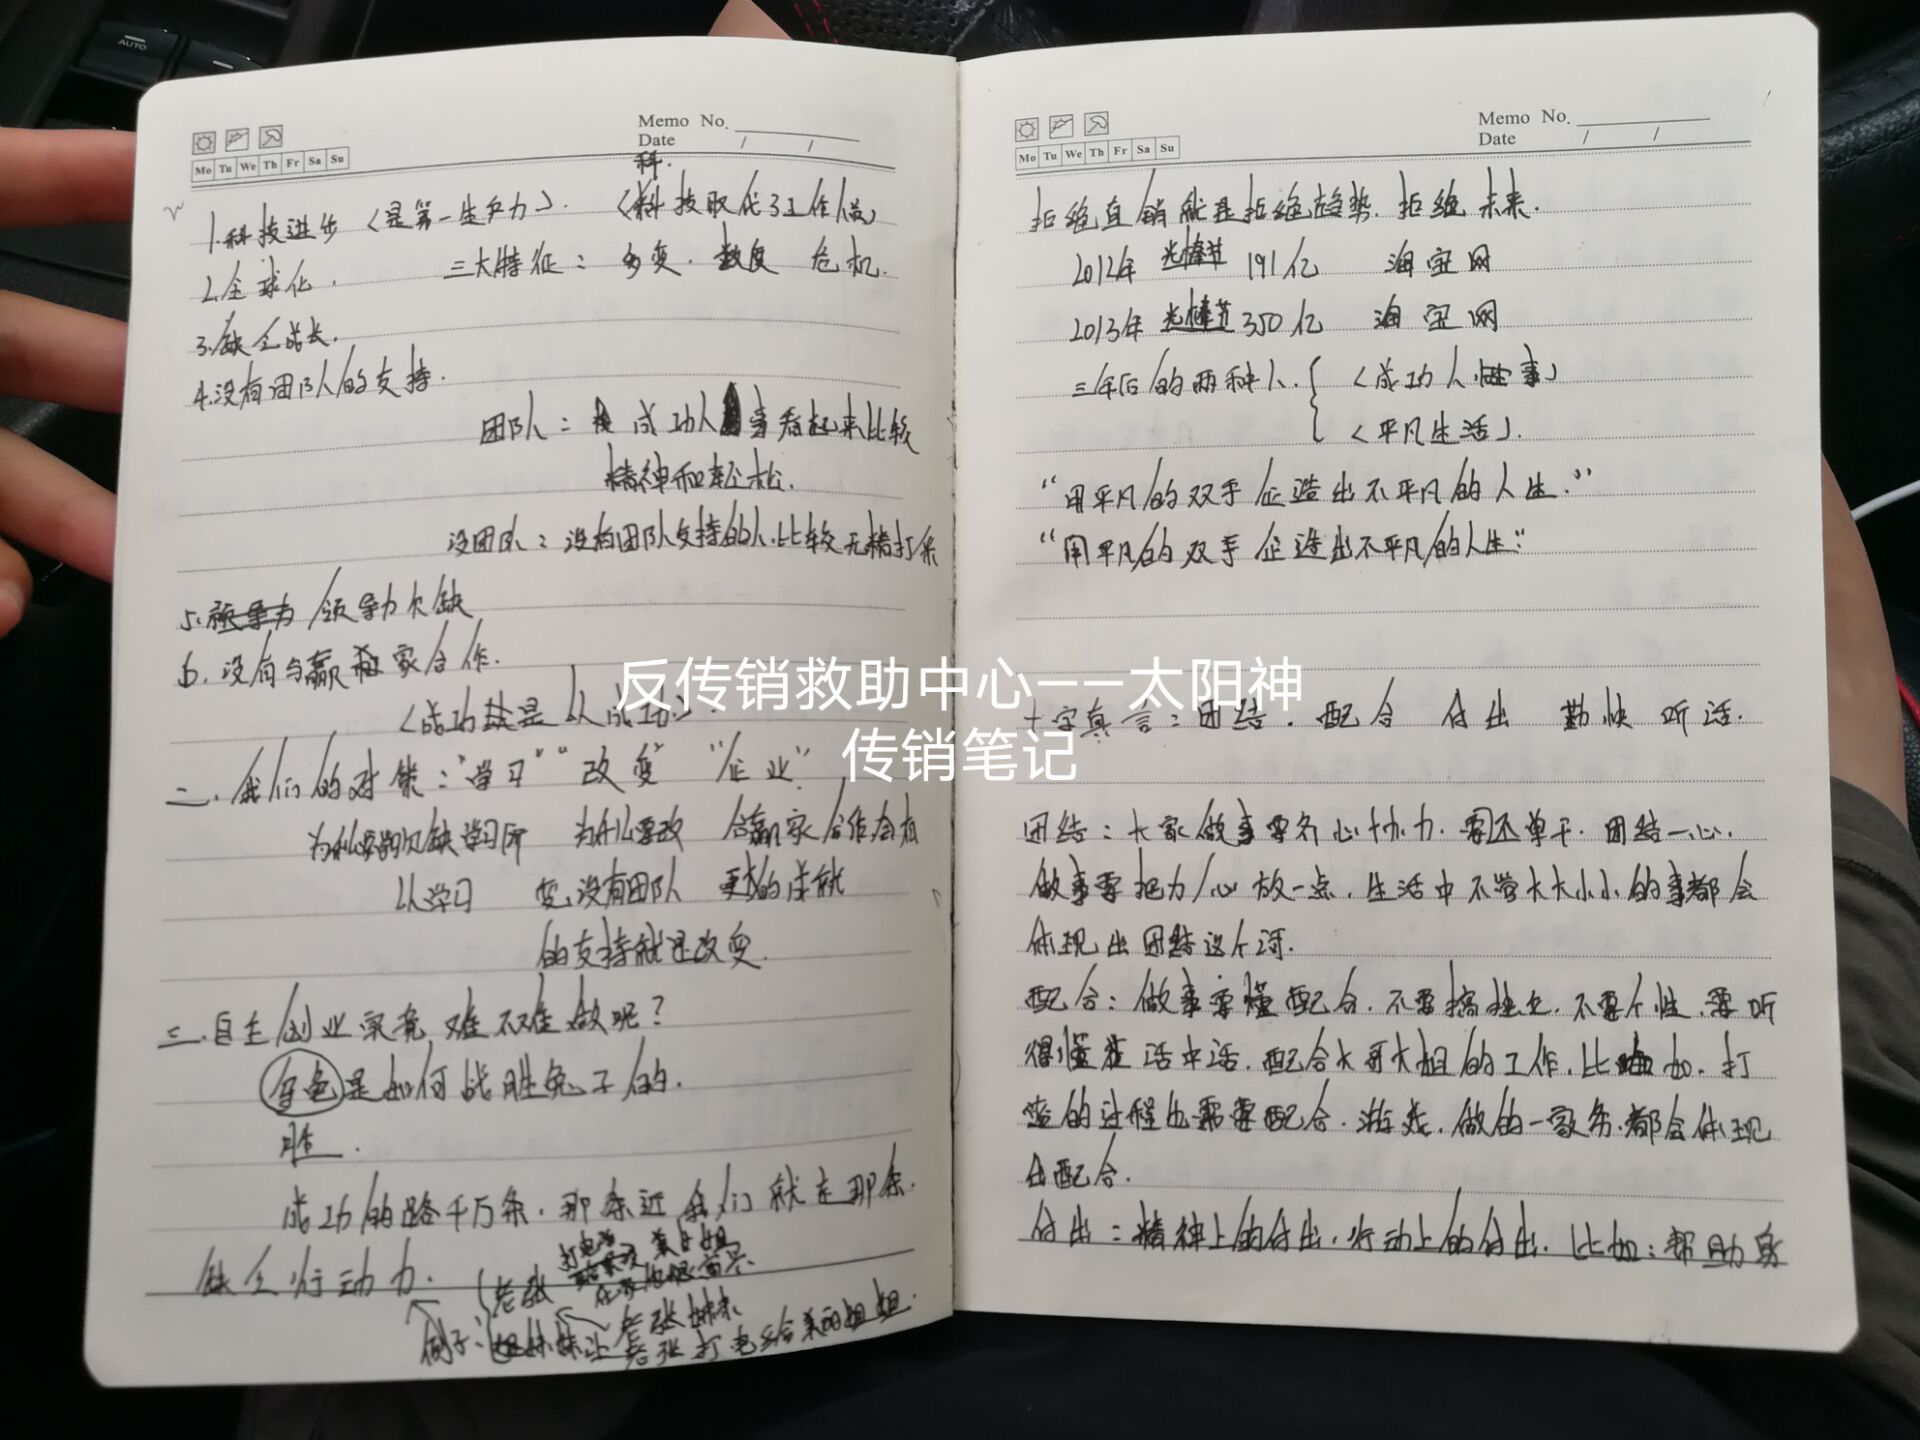 Memo No.
Date / /
Mo Tu We Th Fr Sa Su
科.
1.科技进步〈是第一生产力〉. 〈科技取代了工作人员〉
2.全球化. 三大特征: 多变. 速度 危机.
3.缺乏成长.
4.没有团队的支持.
团队: 成功人事看起来比较
精神和轻松.
没团队: 没有团队支持的人.比较无精打采
5.领导力欠缺
6.没有与赢家合作.
〈成功 是 从成功〉.
二.我们的对策:"学习" "改变" "企业"
为什么要学习欠缺学习所 为什么要改 合赢家合作会有
以学习 变,没有团队 更好的成就
的支持就还改变.
三.自主创业究竟难不难做呢?
乌龟是如何战胜兔子的.
胜.
成功的路千万条.那条近我们就走那条.
缺乏行动力.
老张
例子: 老张打电话给 姐姐.
Memo No.
Date / /
Mo Tu We Th Fr Sa Su
拒绝直销就是拒绝趋势.拒绝未来.
2012年 光棒节 191亿 淘宝网
2013年 光棒节 350亿 淘宝网
三年后的两种人.{〈成功人事〉
〈平凡生活〉.
"用平凡的双手企造出不平凡的人生."
"用平凡的双手企造出不平凡的人生."
反传销救助中心——太阳神
传销笔记
十字真言:团结.配合 付出 勤快 听话.
团结:大家做事要齐心协力.要不单干.团结一心.
做事要把力心放一点.生活中不管大大小小的事都会
体现出团结这个词.
配合:做事要懂配合.不要搞独立.不要个性.要听
得懂话中话.配合大哥大姐的工作.比如.打
的过程也需要配合.游戏.做的一家务.都会体现
出配合.
付出:精神上的付出.行动上的付出.比如:帮助身